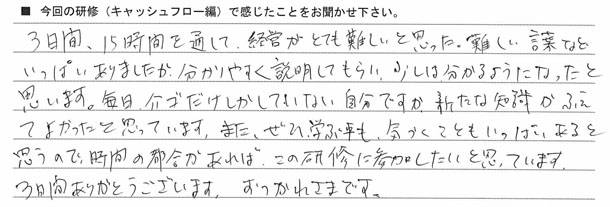 ■ 今回の研修（キャッシュフロー編）で感じたことをお聞かせ下さい。
3日間、15時間を通して、経営がとても難しいと思った。難しい言葉など
いっぱいありましたが、分かりやすく説明してもらい、少しは分かるようになったと
思います。毎日、介ゴだけしかしていない自分ですが、新たな知識がふえ
てよかったと思っています。また、ぜひ学ぶ事も、気づくこともいっぱいあると
思うので、時間の都合があれば、この研修に参加したいと思っています。
3日間ありがとうございます。 おつかれさまです。